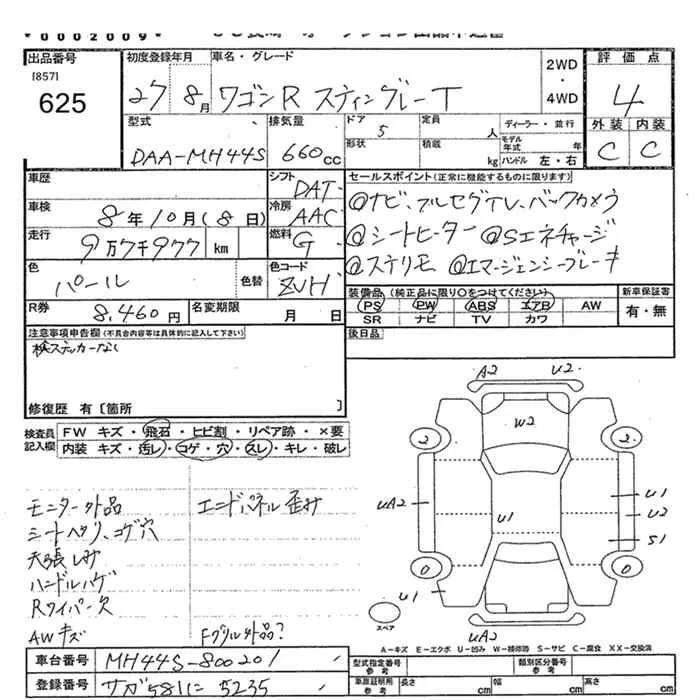 *0002009*
出品番号
[857]
625
初度登録年月 車名・グレード
27 8月 ワゴンR スティングレーT
2WD・4WD
評価点
4
外装 内装
C C
型式 排気量 ドア 定員 ディーラー・並行
DAA-MH44S 660cc 5 人
形状 積載 kg
モデル年式 年
ハンドル 左・右
車歴
シフト DAT
車検 8年10月(8日)
冷房 AAC
走行 9万7千977 km
燃料 G
色 パール 色替
色コード ZVH
R券 8,460円 名変期限 月 日
セールスポイント(正常に機能するものに限ります)
@ナビ、フルセグTV、バックカメラ
@シートヒーター @Sエネチャージ
@ステリモ @エマージェンシーブレーキ
装備品(純正品に限り○をつけてください)
PS PW ABS エアB AW
SR ナビ TV カワ
新車保証書
有・無
後日品
注意事項申告欄(不具合内容等は具体的に記入して下さい)
検ステッカーなし
修復歴 有〔箇所
検査員記入欄
FW キズ・飛石・ヒビ割・リペア跡・×要
内装 キズ・汚レ・コゲ・穴・スレ・キレ・破レ
モニター外品
シートヘタリ、コゲ穴
天張しみ
ハンドルハゲ
Rワイパー欠
AWキズ
エンドパネル歪み
Fグリル外品?
A2 U2
W2
2 2
UA2
U1
U1
U2
S1
0 0
U1
スペア
UA2
A-キズ E-エクボ U-凹み W-補修跡 S-サビ C-腐食 XX-交換済
車台番号 MH44S-800201
登録番号 サガ581に5235
型式指定番号 参考
類別区分番号 参考
車庫証明用 参考
長さ cm 幅 cm 高さ cm